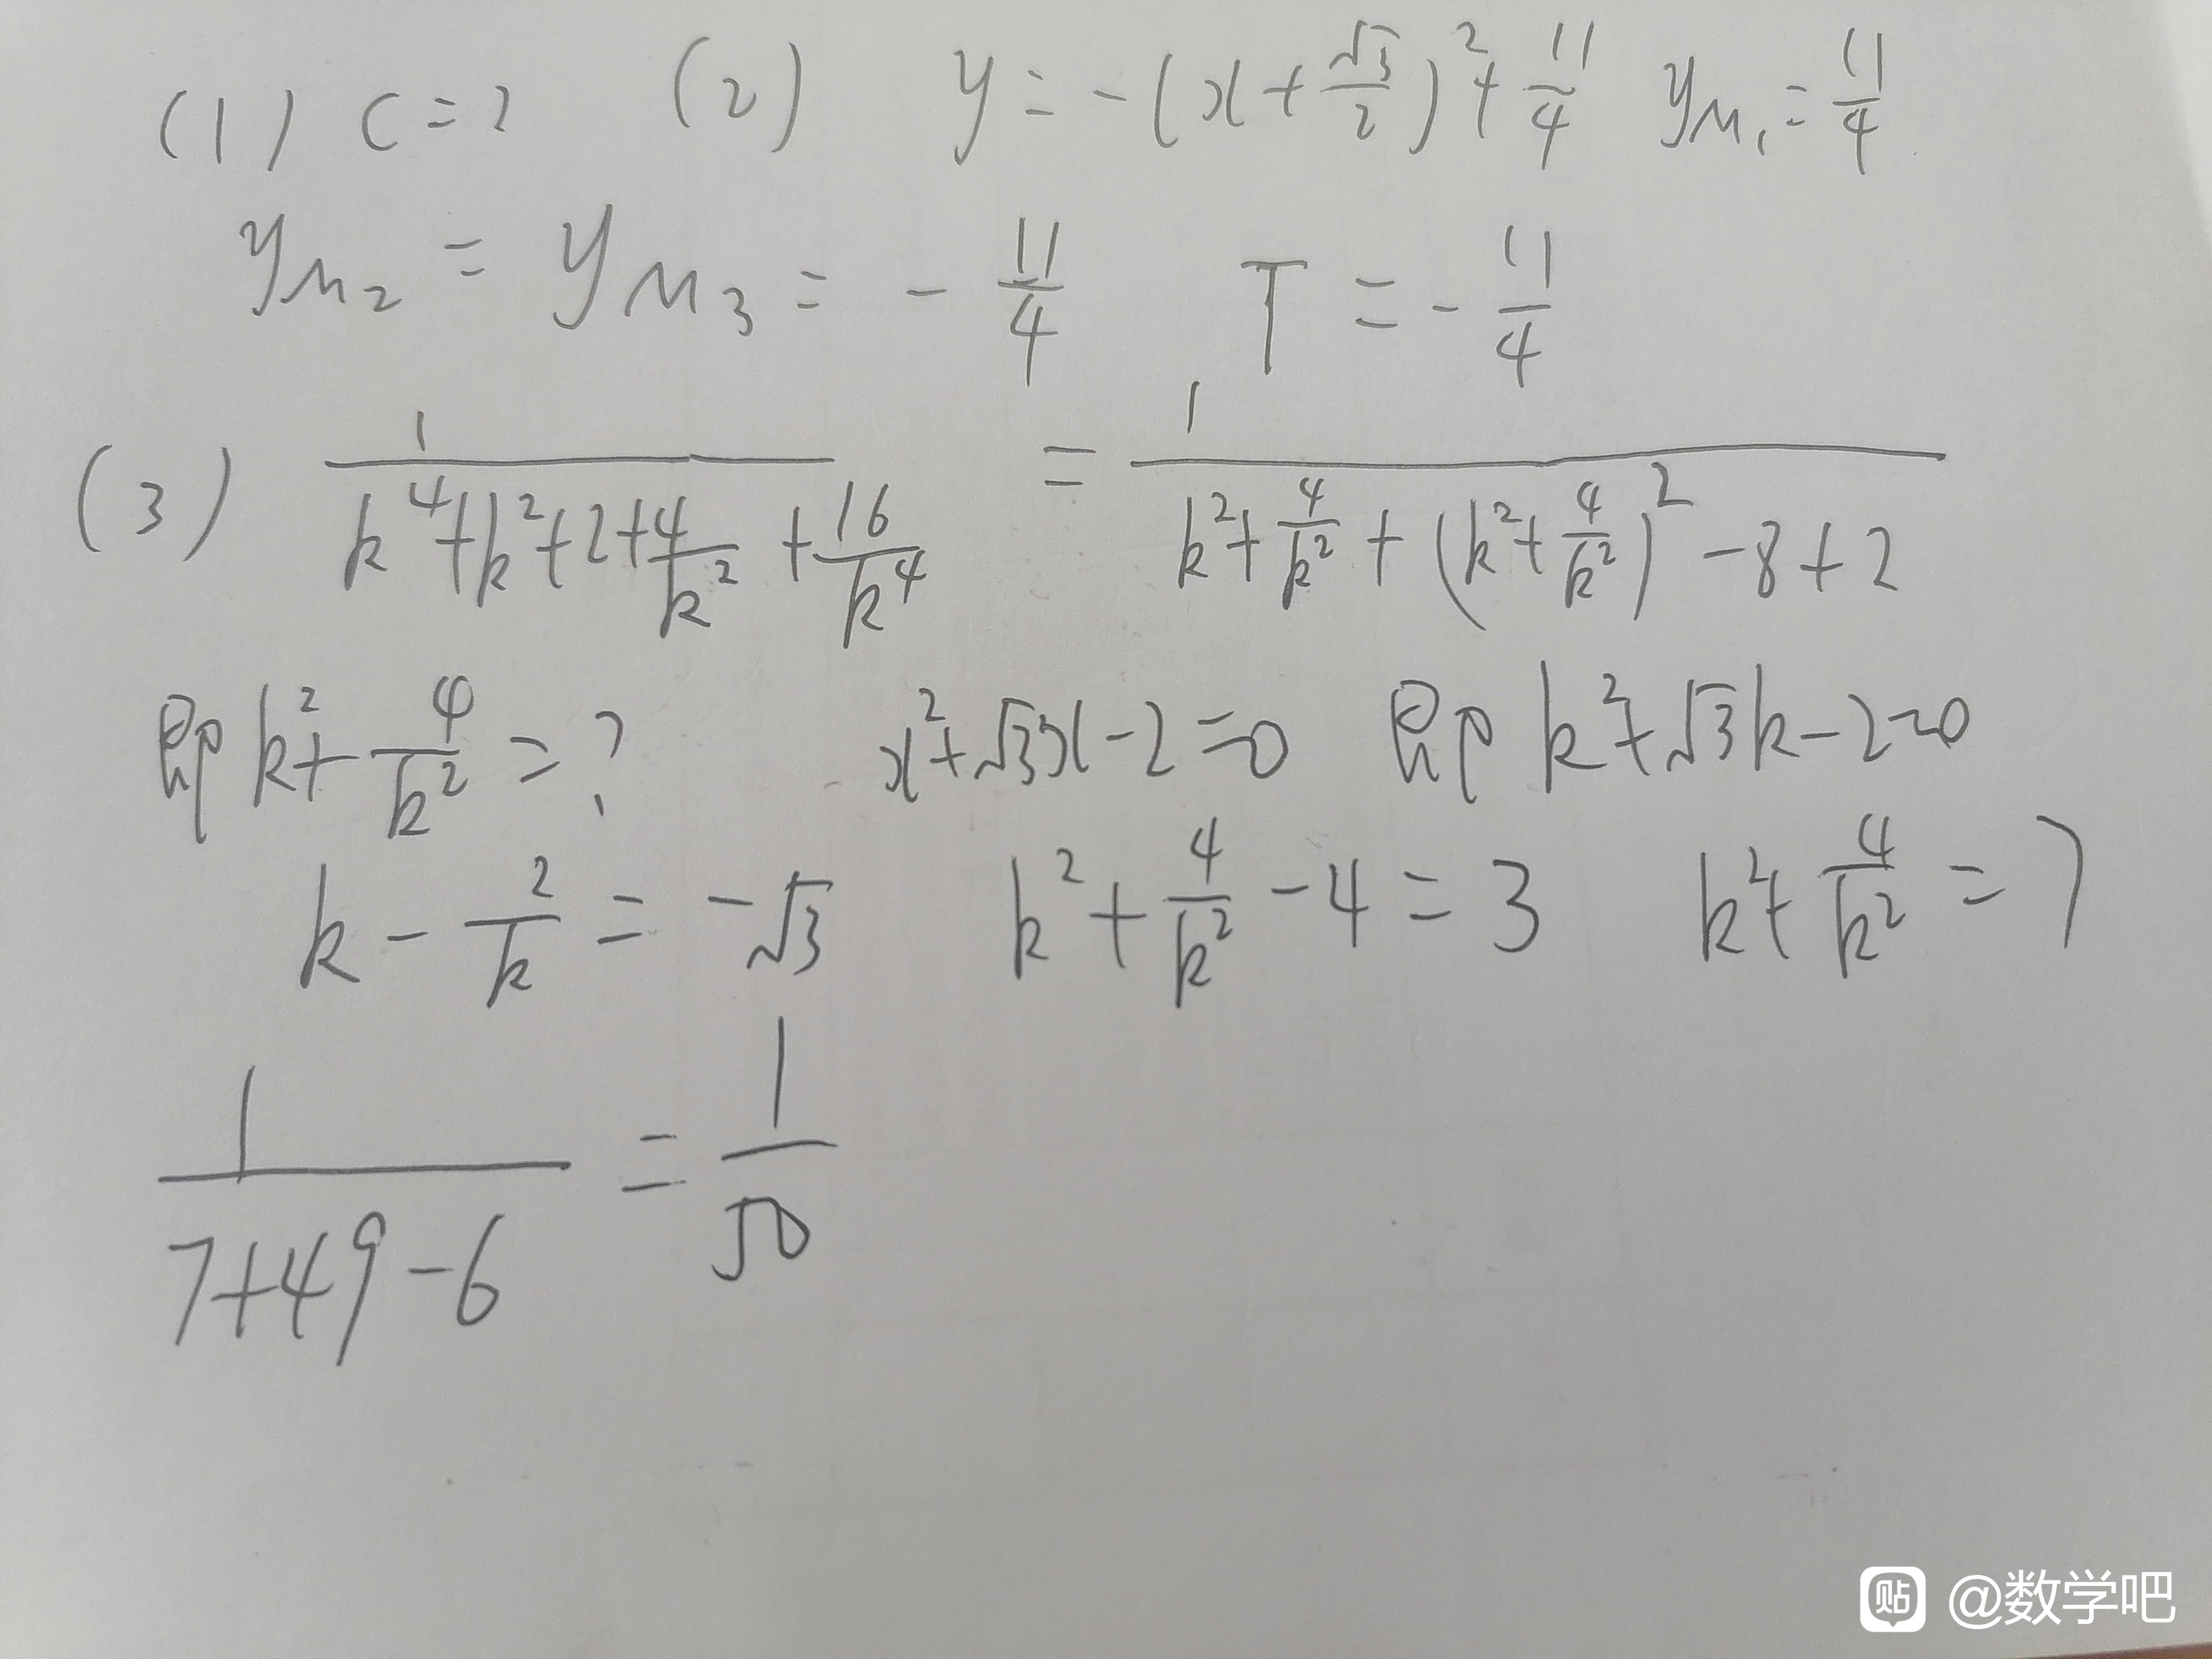 (1) c=2 (2) y=-(x+√3/2)²+11/4 yM₁=11/4
yM₂=yM₃=-11/4 T=-11/4
(3) 1/(k⁴+k²+2+4/k²+16/k⁴) = 1/(k²+4/k²+(k²+4/k²)²-8+2)
即k²+4/k²=? x²+√3x-2=0 即k²+√3k-2=0
k-2/k=-√3 k²+4/k²-4=3 k²+4/k²=7
1/(7+49-6)=1/50
贴 @数学吧